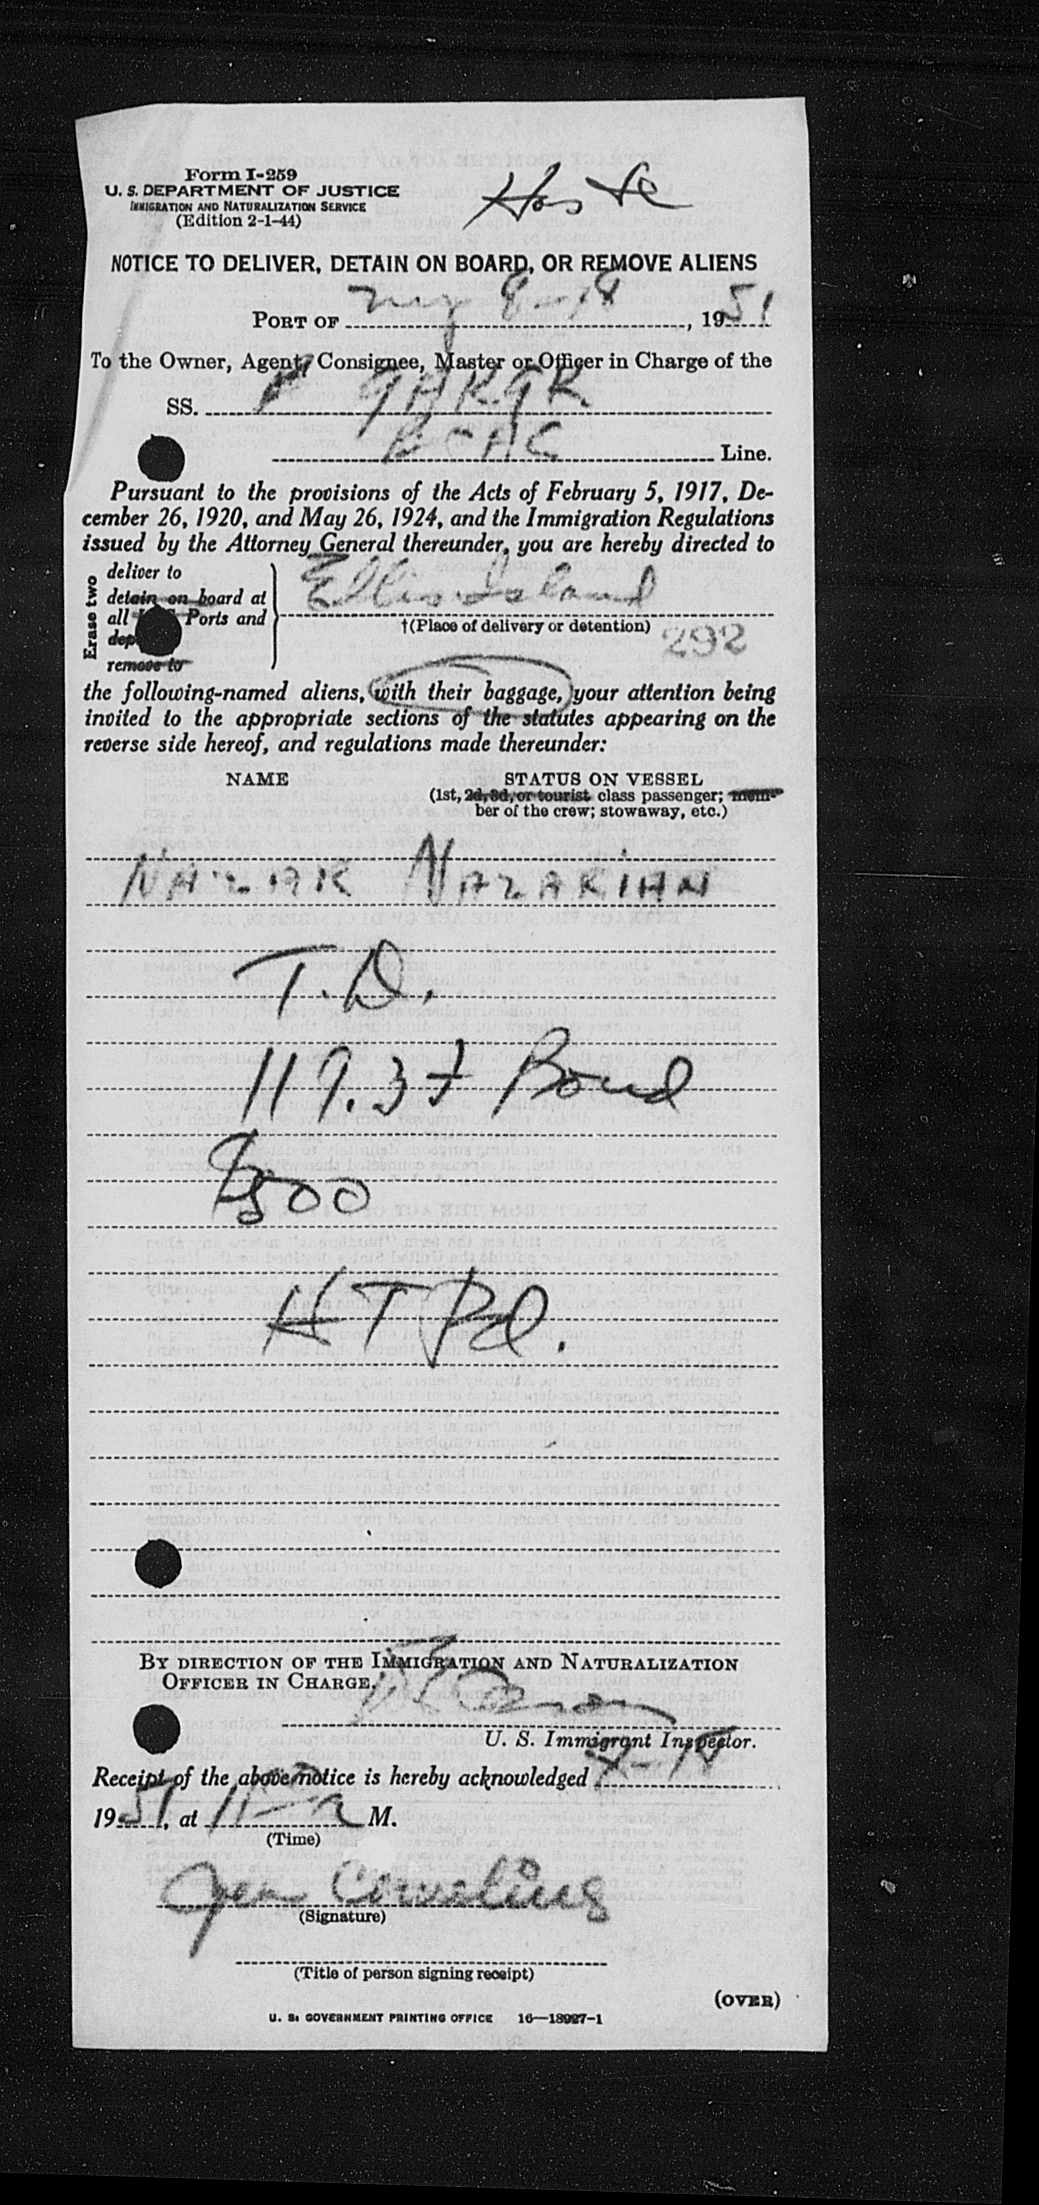 Form I-259
U. S. DEPARTMENT OF JUSTICE
IMMIGRATION AND NATURALIZATION SERVICE
(Edition 2-1-44)
NOTICE TO DELIVER, DETAIN ON BOARD, OR REMOVE ALIENS
PORT OF NY 8-18, 1951
To the Owner, Agent, Consignee, Master or Officer in Charge of the
SS. GAKGK
BOAC Line.
Pursuant to the provisions of the Acts of February 5, 1917, De-
cember 26, 1920, and May 26, 1924, and the Immigration Regulations
issued by the Attorney General thereunder, you are hereby directed to
Erase two
deliver to
detain on board at
all Ports and
remove to
Ellis Island
†(Place of delivery or detention)
292
the following-named aliens, with their baggage, your attention being
invited to the appropriate sections of the statutes appearing on the
reverse side hereof, and regulations made thereunder:
NAME STATUS ON VESSEL
(1st, 2d, 3d, or tourist class passenger; mem-
ber of the crew; stowaway, etc.)
NAZAR NAZARIAN
T. D.
119.37 Bond
$500
HT Pd.
BY DIRECTION OF THE IMMIGRATION AND NATURALIZATION
OFFICER IN CHARGE.
U. S. Immigrant Inspector.
Receipt of the above notice is hereby acknowledged
1951, at M.
(Time)
(Signature)
(Title of person signing receipt)
(OVER)
U. S. GOVERNMENT PRINTING OFFICE 16—18927-1